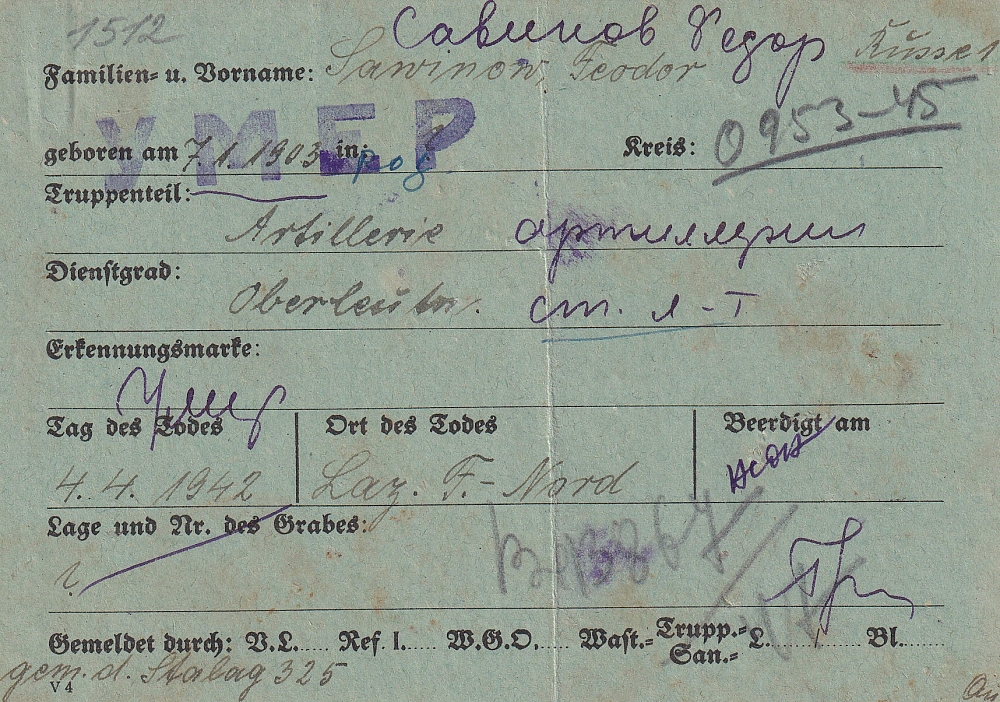 1512 Савинов Федор
Familien= u. Vorname: Sawinow, Feodor Russe
УМЕР
0953-45
geboren am 7.1.1903 in: Kreis:
Truppenteil:
Artillerie артиллерии
Dienstgrad:
Oberleutn. ст. л-т
Erkennungsmarke:
Умер
Tag des Todes Ort des Todes Beerdigt am
4.4.1942 Laz. F.- Nord
Lage und Nr. des Grabes:
?
Gemeldet durch: V.L..... Ref. I...... W.G.O..... Wast.= Trupp.= San.= L. Bl.
gem. d. Stalag 325
V 4